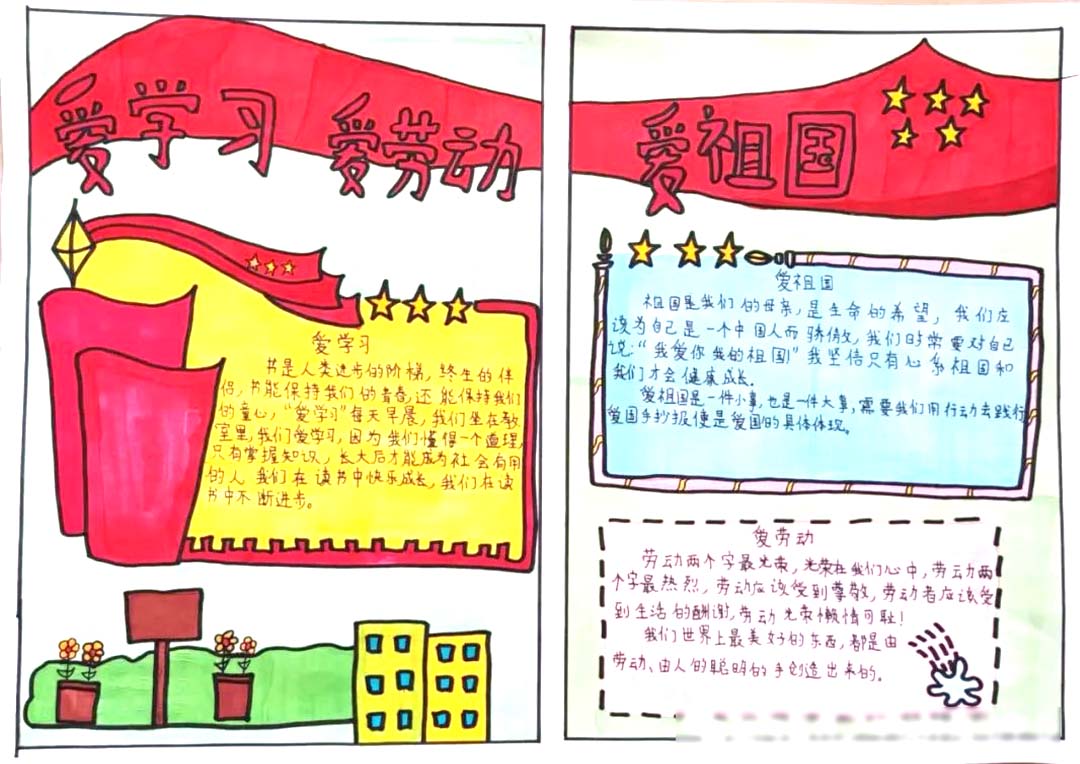 爱学习 爱劳动
爱学习
书是人类进步的阶梯，终生的伴
侣，书能保持我们的青春，还能保持我们
的童心，“爱学习”每天早晨，我们坐在教
室里，我们爱学习，因为我们懂得一个道理，
只有掌握知识，长大后才能成为社会有用
的人，我们在读书中快乐成长，我们在读
书中不断进步。
爱祖国
爱祖国
祖国是我们的母亲，是生命的希望，我们应
该为自己是一个中国人而骄傲，我们时常要对自己
说：“我爱你我的祖国！”我坚信只有心系祖国和
我们才会健康成长。
爱祖国是一件小事，也是一件大事，需要我们用行动去践行，
爱国手抄报便是爱国的具体体现。
爱劳动
劳动两个字最光荣，光荣在我们心中，劳动两
个字最热烈，劳动应该受到尊敬，劳动者应该受
到生活的酬谢，劳动光荣懒惰可耻！
我们世界上最美好的东西，都是由
劳动、由人的聪明的手创造出来的。